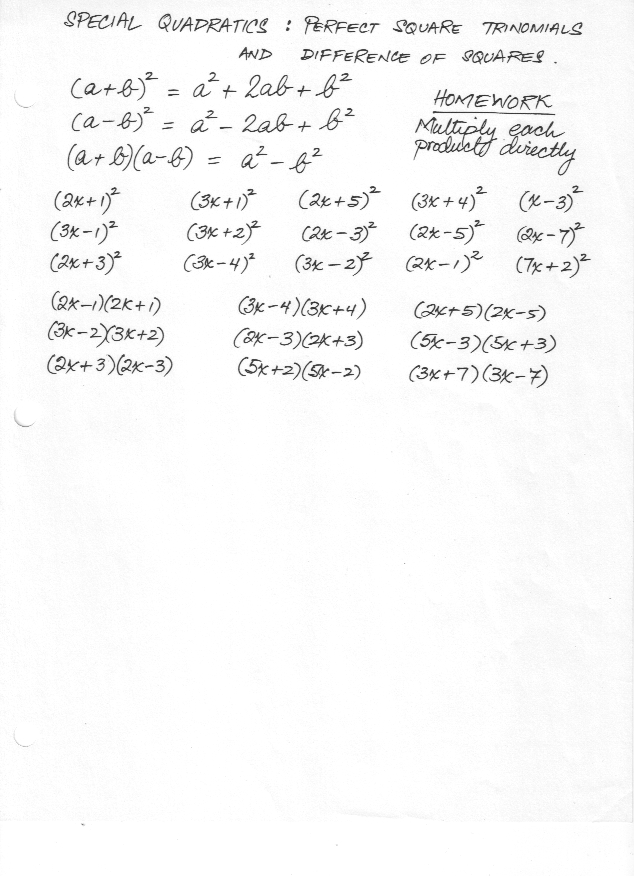 SPECIAL QUADRATICS : PERFECT SQUARE TRINOMIALS
AND DIFFERENCE OF SQUARES.
(a+b)² = a² + 2ab + b²
(a-b)² = a² - 2ab + b²
(a+b)(a-b) = a² - b²
HOMEWORK
Multiply each
products directly
(2x+1)² (3x+1)² (2x+5)² (3x+4)² (x-3)²
(3x-1)² (3x+2)² (2x-3)² (2x-5)² (2x-7)²
(2x+3)² (3x-4)² (3x-2)² (2x-1)² (7x+2)²
(2x-1)(2x+1) (3x-4)(3x+4) (2x+5)(2x-5)
(3x-2)(3x+2) (2x-3)(2x+3) (5x-3)(5x+3)
(2x+3)(2x-3) (5x+2)(5x-2) (3x+7)(3x-7)